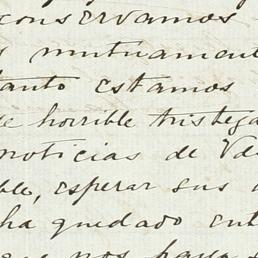 conservamos
s mutuament
tanto estamos
e horrible tristega
noticias de Va
ble, esperar sus
ha quedado ent
que nos haya s